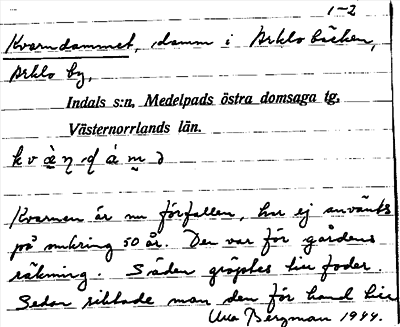 1-2
Kvarndammet, damm i Arklobäcken,
Arklo by,
Indals s:n, Medelpads östra domsaga tg,
Västernorrlands län.
Kvarnen är nu förfallen, har ej använts
på omkring 50 år. Den var för gårdens
räkning. Säden gröptes till foder.
Sedan siktade man den för hand till
Bergman 1944.